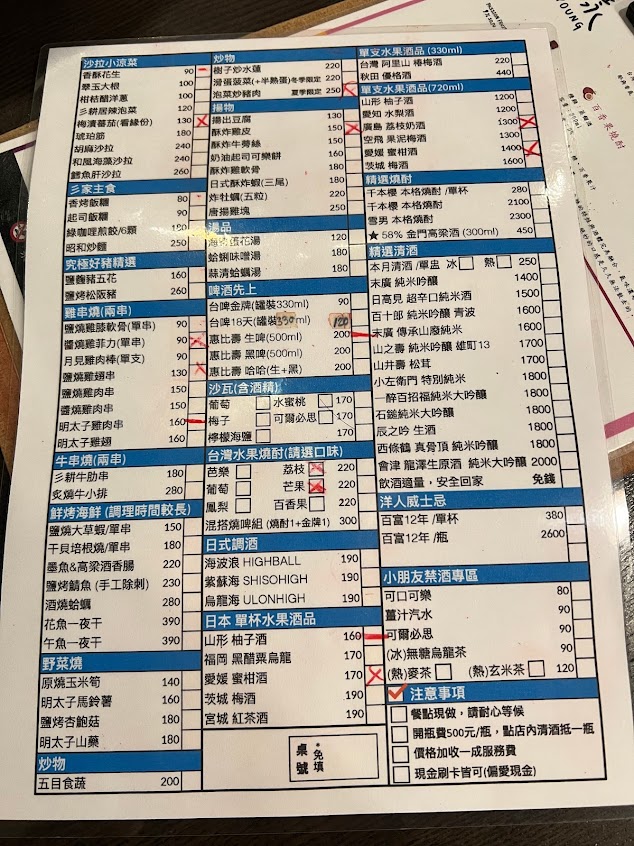 沙拉小涼菜
香酥花生 90
翠玉大根 100
柑桔醋洋蔥 100
彡耕居辣泡菜 120
梅漬蕃茄(看緣份) 130
琥珀筋 180
胡麻沙拉 240
和風海藻沙拉 240
鱈魚肝沙拉 260
彡家主食
香烤飯糰 80
起司飯糰 90
綠咖哩煎餃/6顆 180
昭和炒麵 250
究極好豬精選
鹽麴豬五花 160
鹽烤松阪豬 260
雞串燒(兩串)
鹽燒雞膝軟骨(單串) 90
醬燒雞菲力(單串) 90
月見雞肉棒(單支) 90
鹽燒雞翅串 130
鹽燒雞肉串 150
醬燒雞肉串 150
明太子雞肉串 160
明太子雞翅 160
牛串燒(兩串)
彡耕牛肋串 180
炙燒牛小排 280
鮮烤海鮮 (調理時間較長)
鹽燒大草蝦/單串 150
干貝培根燒/單串 180
墨魚&高梁酒香腸 220
鹽烤鯖魚 (手工除刺) 230
酒燒蛤蠣 280
花魚一夜干 390
午魚一夜干 390
野菜燒
原燒玉米筍 140
明太子馬鈴薯 160
鹽烤杏鮑菇 180
明太子山藥 180
炒物
五目食蔬 200
炒物
樹子炒水蓮 220
滑蛋菠菜(+半熟蛋)冬季限定 220
泡菜炒豬肉 夏季限定 250
揚物
揚出豆腐 130
酥炸雞皮 150
酥炸牛蒡絲 150
奶油起司可樂餅 160
酥炸雞軟骨 180
日式酥炸蝦(三尾) 180
炸牡蠣(五粒) 220
唐揚雞塊 250
湯品
海苔蛋花湯 120
蛤蜊味噌湯 180
蒜清蛤蠣湯 180
啤酒先上
台啤金牌(罐裝330ml) 90
台啤18天(罐裝330ml) 120
惠比壽 生啤(500ml) 200
惠比壽 黑啤(500ml) 200
惠比壽 哈哈(生+黑) 200
沙瓦(含酒精)
葡萄 水蜜桃 170
梅子 可爾必思 170
檸檬海鹽 170
台灣水果燒酎(請選口味)
芭樂 荔枝 220
葡萄 芒果 220
鳳梨 百香果 220
混搭燒啤組 (燒酎1+金牌1) 300
日式調酒
海波浪 HIGHBALL 190
紫蘇海 SHISOHIGH 190
烏龍海 ULONHIGH 190
日本 單杯水果酒品
山形 柚子酒 160
福岡 黑醋栗烏龍 170
愛媛 蜜柑酒 170
茨城 梅酒 190
宮城 紅茶酒 190
桌號
*免填
單支水果酒品 (330ml)
台灣 阿里山 椿梅酒 220
秋田 優格酒 440
單支水果酒品(720ml)
山形 柚子酒 1200
愛知 水梨酒 1200
廣島 荔枝奶酒 1300
空飛 果泥梅酒 1300
愛媛 蜜柑酒 1400
茨城 梅酒 1600
精選燒酎
千本櫻 本格燒酎 /單杯 280
千本櫻 本格燒酎 2100
雪男 本格燒酎 2300
★ 58% 金門高粱酒 (300ml) 450
精選清酒
本月清酒 /單盅 冰 熱 250
末廣 純米吟釀 1400
日高見 超辛口純米酒 1500
百十郎 純米吟釀 青波 1600
末廣 傳承山廢純米 1600
山之壽 純米吟釀 雄町13 1700
山井壽 松茸 1700
小左衛門 特別純米 1800
一醉百福純米大吟釀 1800
石鎚純米大吟釀 1800
辰之吟 生酒 1800
西條鶴 真骨頂 純米吟釀 1800
會津 龍澤生原酒 純米大吟釀 2000
飲酒適量，安全回家 免錢
洋人威士忌
百富12年 /單杯 380
百富12年 /瓶 2600
小朋友禁酒專區
可口可樂 80
薑汁汽水 90
可爾必思 90
(冰)無糖烏龍茶 90
(熱)麥茶 (熱)玄米茶 120
注意事項
餐點現做，請耐心等候
開瓶費500元/瓶，點店內清酒抵一瓶
價格加收一成服務費
現金刷卡皆可(偏愛現金)
百香果燒酎